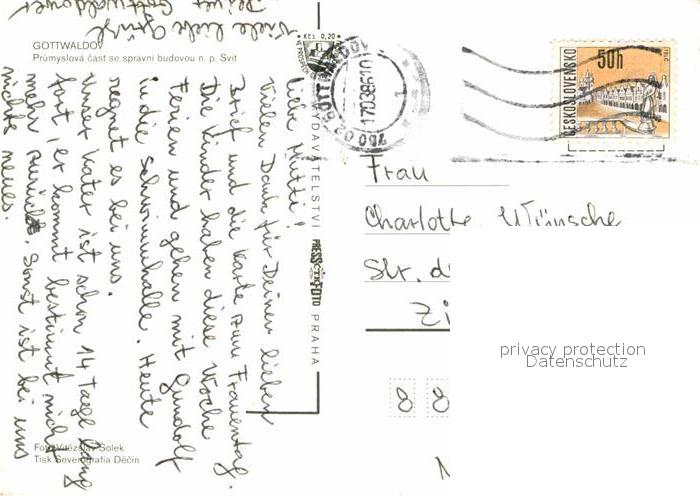 GOTTWALDOV
Průmyslová část se správní budovou n. p. Svit
Kčs 0,20
760 02 GOTTWALDOV
1
ČESKOSLOVENSKO
50h
VYDAVATELSTVÍ PRESSFOTO PRAHA
Liebe Mutti!
Vielen Dank für Deinen lieben
Brief und die Karte zum Frauentag.
Die Kinder haben diese Woche
Ferien und gehen mit Gundolf
in die Schwimmhalle. Heute
regnet es bei uns.
Unser Kater ist schon 14 Tage lang
fort, er kommt bestimmt nicht
mehr zurück. Sonst ist bei uns
nichts neues.
Viele liebe Grüße
Deine Gottwaldover
Frau
Charlotte Wünsche
Str. d
Zi
8 8
Foto Vítězslav Šolek
Tisk Severografia Děčín
privacy protection
Datenschutz